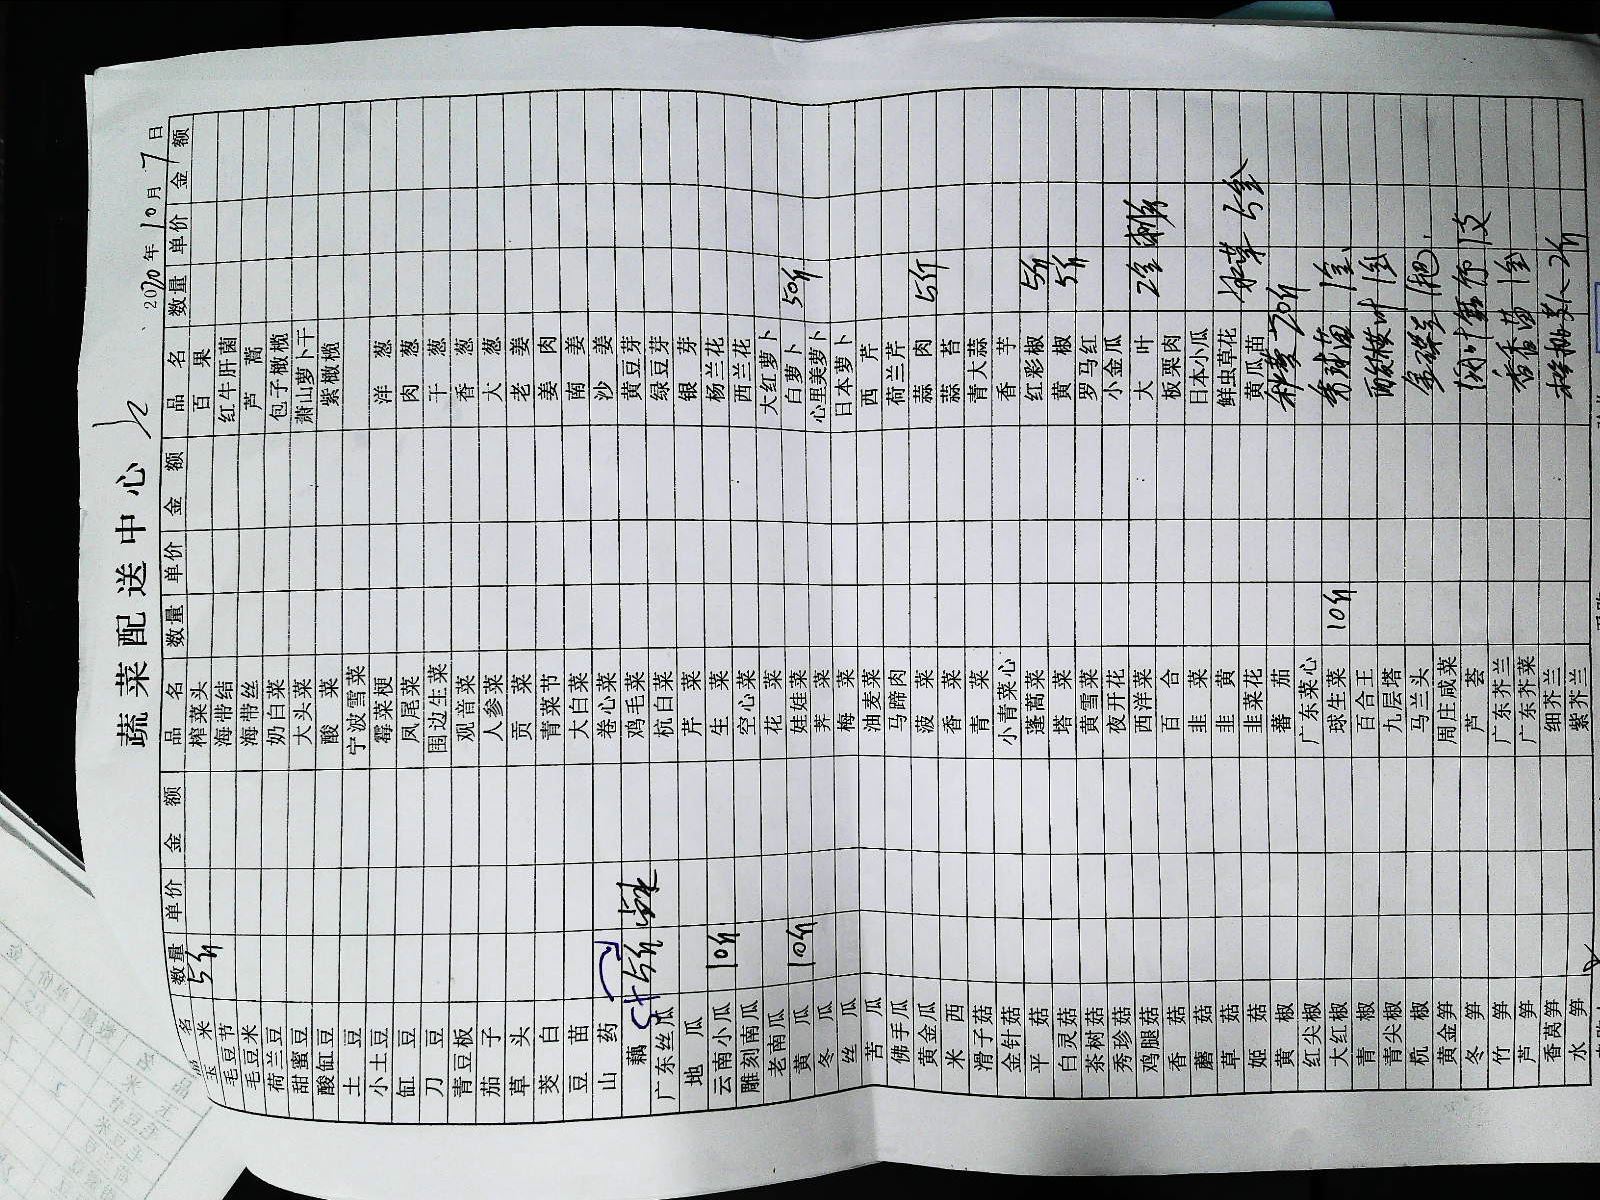 蔬菜配送中心
2020年10月7日
品名 数量 单价 金额 品名 数量 单价 金额 品名 数量 单价 金额
玉米 5斤 榨菜头 百果
毛豆节 海带结 红牛肝菌
毛豆米 海带丝 芦蒿
荷兰豆 奶白菜 包子橄榄
甜蜜豆 大头菜 萧山萝卜干
酸缸豆 酸菜 紫橄榄
土豆 宁波雪菜
小土豆 霉菜梗 洋葱
缸豆 凤尾菜 肉葱
刀豆 围边生菜 干葱
青豆板 观音菜 香葱
茄子 人参菜 大葱
草头 贡菜 老姜
茭白 青菜节 姜肉
豆苗 大白菜 南姜
山药 卷心菜 沙姜
藕 5斤 鸡毛菜 黄豆芽
广东丝瓜 杭白菜 绿豆芽
地瓜 芹菜 银芽
云南小瓜 10斤 生菜 杨兰花
雕刻南瓜 空心菜 西兰花
老南瓜 花菜 大红萝卜
黄瓜 10斤 娃娃菜 白萝卜 50斤
冬瓜 荠菜 心里美萝卜
丝瓜 梅菜 日本萝卜
苦瓜 油麦菜 西芹
佛手瓜 马蹄肉 荷兰芹
黄金瓜 菠菜 蒜肉 5斤
米西 香菜 蒜苔
滑子菇 青菜 青大蒜
金针菇 小青菜心 香芋
平菇 蓬蒿菜 红彩椒 5斤
白灵菇 塔菜 黄椒 5斤
茶树菇 黄雪菜 罗马红
秀珍菇 夜开花 小金瓜
鸡腿菇 西洋菜 大叶 2盒
香菇 百合 板栗肉
蘑菇 韭菜 日本小瓜
草菇 韭黄 鲜虫草花
姬菇 韭菜花 黄瓜苗
黄椒 蕃茄 20斤
红尖椒 广东菜心
大红椒 球生菜 10斤
青椒 百合王
青尖椒 九层塔
杭椒 马兰头
黄金笋 周庄咸菜
冬笋 芦荟
竹笋 广东芥兰
芦笋 广东芥菜
香莴笋 细芥兰
水笋 紫芥兰